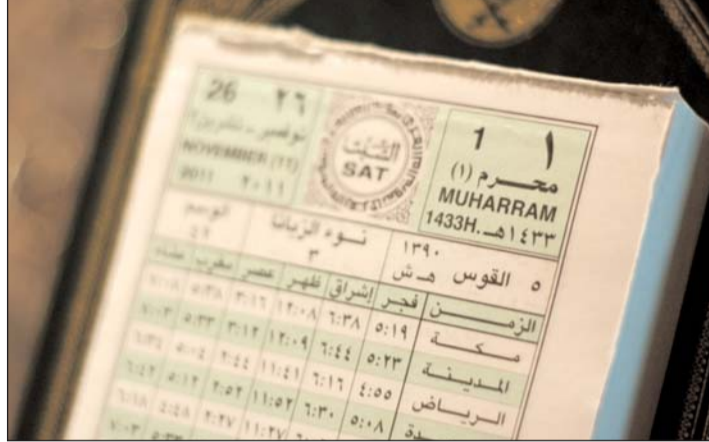 26 ٢٦
نوفمبر - تشرين٢
NOVEMBER (11)
2011 ٢٠١١
السبت
SAT
1 ١
محرم (١)
MUHARRAM
1433H. ١٤٣٣هـ
٥ القوس ١٣٩٠ هـ ش
نوء الزبانا
٣
الوسم
الزمن فجر إشراق ظهر عصر مغرب عشاء
مكة ٥:١٩ ٦:٣٨ ١٢:٠٨ ٣:١٦ ٥:٣٨ ٧:٠٨
المدينة ٥:٢٣ ٦:٤٤ ١٢:٠٩ ٣:١٢ ٥:٣٣ ٧:٠٣
الرياض ٤:٥٥ ٦:١٦ ١١:٤١ ٢:٤٤ ٥:٠٤ ٦:٣٤
٥:٠٨ ٦:٣٠ ١١:٥٢ ٢:٥٢ ٥:١٢ ٦:٤٢
١١:٢٧ ٢:٢٧ ٦:١٨